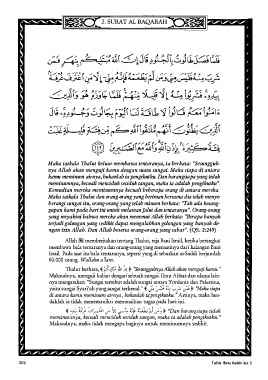 2. SURAT AL BAQARAH
فَلَمَّا فَصَلَ طَالُوتُ بِٱلْجُنُودِ قَالَ إِنَّ ٱللَّهَ مُبْتَلِيكُم بِنَهَرٍ فَمَن
شَرِبَ مِنْهُ فَلَيْسَ مِنِّي وَمَن لَّمْ يَطْعَمْهُ فَإِنَّهُۥ مِنِّيٓ إِلَّا مَنِ ٱغْتَرَفَ غُرْفَةًۢ
بِيَدِهِۦ فَشَرِبُوا۟ مِنْهُ إِلَّا قَلِيلًا مِّنْهُمْ فَلَمَّا جَاوَزَهُۥ هُوَ وَٱلَّذِينَ
ءَامَنُوا۟ مَعَهُۥ قَالُوا۟ لَا طَاقَةَ لَنَا ٱلْيَوْمَ بِجَالُوتَ وَجُنُودِهِۦ قَالَ
ٱلَّذِينَ يَظُنُّونَ أَنَّهُم مُّلَٰقُوا۟ ٱللَّهِ كَم مِّن فِئَةٍ قَلِيلَةٍ غَلَبَتْ
فِئَةً كَثِيرَةًۢ بِإِذْنِ ٱللَّهِ وَٱللَّهُ مَعَ ٱلصَّٰبِرِينَ
Maka tatkala Thalut keluar membawa tentaranya, ia berkata: "Sesungguh-
nya Allah akan menguji kamu dengan suatu sungai. Maka siapa di antara
kamu meminum airnya, bukanlah ia pengikutku. Dan barangsiapa yang tidak
meminumnya, kecuali menciduk seciduk tangan, maka ia adalah pengikutku."
Kemudian mereka meminumnya kecuali beberapa orang di antara mereka.
Maka tatkala Thalut dan orang-orang yang beriman bersama dia telah menye-
berangi sungai itu, orang-orang yang telah minum berkata: "Tak ada kesang-
gupan kami pada hari ini untuk melawan Jalut dan tentaranya." Orang-orang
yang meyakini bahwa mereka akan menemui Allah berkata: "Berapa banyak
terjadi golongan yang sedikit dapat mengalahkan golongan yang banyak de-
ngan izin Allah. Dan Allah beserta orang-orang yang sabar". (QS. 2:249)
Allah memberitakan tentang Thalut, raja Bani Israil, ketika berangkat
membawa bala tentaranya dan orang-orang yang menaatinya dari kalangan Bani
Israil. Pada saat itu bala tentaranya, seperti yang di sebutkan as-Suddi berjumlah
80.000 orang. Wallahu a'lam.
Thalut berkata, "Sesungguhnya Allah akan menguji kamu."
Maksudnya, menguji kalian dengan sebuah sungai. Ibnu Abbas dan ulama lain-
nya mengatakan: "Sungai tersebut adalah sungai antara Yordania dan Palestina,
yaitu sungai Syari'ah yang sangat terkenal." "Maka siapa
di antara kamu meminum airnya, bukanlah ia pengikutku." Artinya, maka hen-
daklah ia tidak menemaniku meneruskan tugas pada hari ini.
"Dan barangsiapa tidak
meminumnya, kecuali menciduk seciduk tangan, maka ia adalah pengikutku."
Maksudnya, maka tidak mengapa baginya untuk meminumnya sedikit.
Tafsir Ibnu Katsir Juz 2